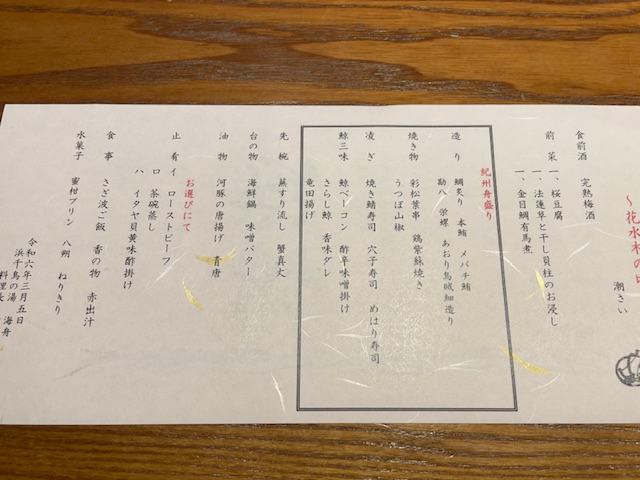 ～花水木の
潮さい
食前酒　完熟梅酒
前菜　一、桜豆腐
一、法蓮草と干し貝柱のお浸し
一、金目鯛有馬煮
紀州舟盛り
造り　鯛炙り　本鮪　メバチ鮪
勘八　栄螺　あおり烏賊細造り
焼き物　彩松葉串　鶏紫蘇焼き
うつぼ山椒
凌ぎ　焼き鯖寿司　穴子寿司　めはり寿司
鯨三味　鯨ベーコン　酢辛味噌掛け
さらし鯨　香味ダレ
竜田揚げ
先椀　蕪すり流し　蟹真丈
台の物　海鮮鍋　味噌バター
油物　河豚の唐揚げ　青唐
お選びにて
止肴　イ　ローストビーフ
ロ　茶碗蒸し
ハ　イタヤ貝黄味酢掛け
食事　さざ波ご飯　香の物　赤出汁
水菓子　蜜柑プリン　八朔　ねりきり
令和六年三月五日
浜千鳥の湯　海舟
料理長